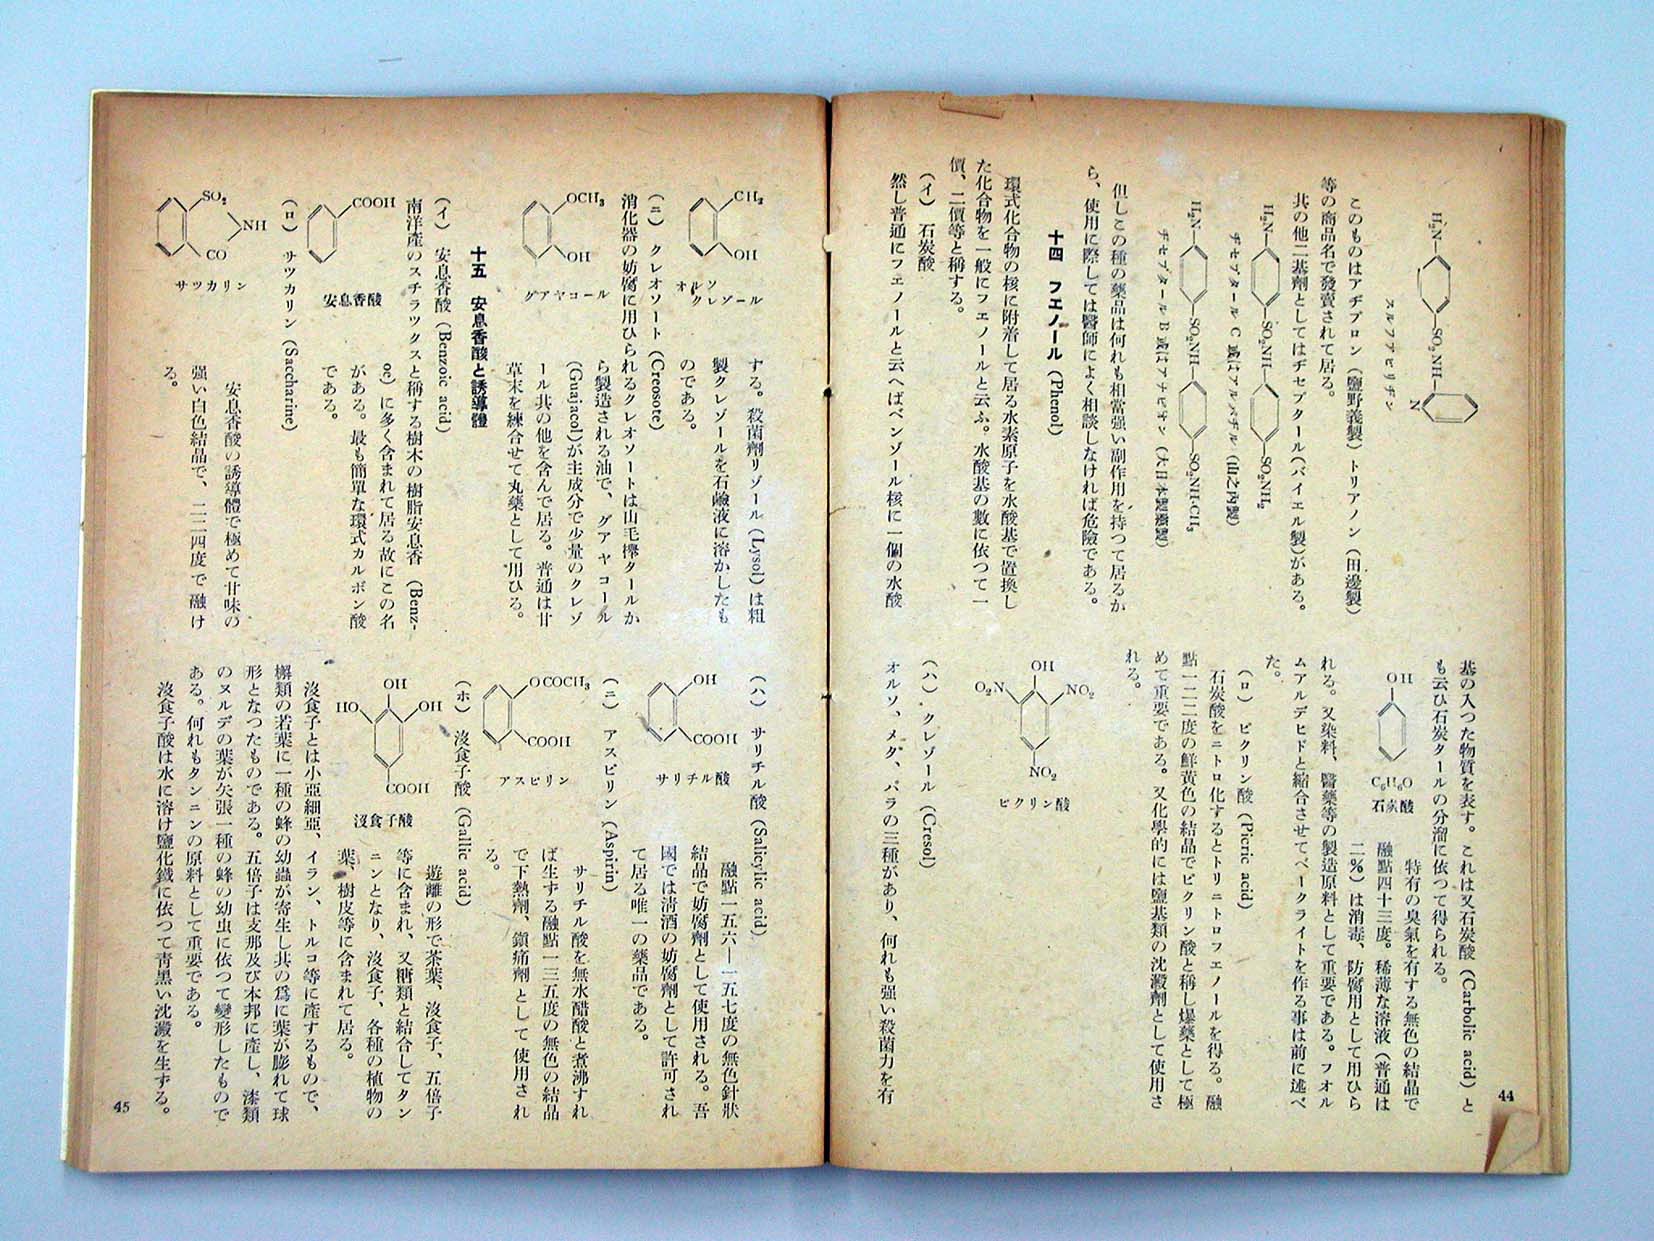 44
H₂N— —SO₂NH— N
スルフアピリヂン
このものはアヂプロン（鹽野義製）トリアノン（田邊製）
等の商品名で發賣されて居る。
其の他二基劑としてはヂセプタール（バイエル製）がある。
H₂N— —SO₂NH— —SO₂NH₂
ヂセプタール C 或はアルバヂル（山之内製）
H₂N— —SO₂NH— —SO₂NH·CH₃
ヂセプタール B 或はアナピオン（大日本製藥製）
但しこの種の藥品は何れも相當强い副作用を持つて居るか
ら、使用に際しては醫師によく相談しなければ危險である。
十四　フエノール（Phenol）
環式化合物の核に附着して居る水素原子を水酸基で置換し
た化合物を一般にフエノールと云ふ。水酸基の數に依つて一
價、二價等と稱する。
（イ）　石炭酸
然し普通にフエノールと云へばベンゾール核に一個の水酸
基の入つた物質を表す。これは又石炭酸（Carbolic acid）と
も云ひ石炭タールの分溜に依つて得られる。
OH
C₆H₆O
石炭酸
特有の臭氣を有する無色の結晶で
融點四十三度。稀薄な溶液（普通は
二％）は消毒、防腐用として用ひら
れる。又染料、醫藥等の製造原料として重要である。フオル
ムアルデヒドと縮合させてベークライトを作る事は前に述べ
た。
（ロ）　ピクリン酸（Picric acid）
石炭酸をニトロ化するとトリニトロフエノールを得る。融
點一二二度の鮮黃色の結晶でピクリン酸と稱し爆藥として極
めて重要である。又化學的には鹽基類の沈澱劑として使用さ
れる。
OH
O₂N
NO₂
NO₂
ピクリン酸
（ハ）　クレゾール（Cresol）
オルソ、メタ、パラの三種があり、何れも强い殺菌力を有
する。殺菌劑リゾール（Lysol）は粗
製クレゾールを石鹼液に溶かしたも
のである。
CH₃
OH
オルソ
クレゾール
（ニ）　クレオソート（Creosote）
消化器の妨腐に用ひられるクレオソートは山毛欅タールか
ら製造される油で、グアヤコール
（Guajacol）が主成分で少量のクレゾ
ール其の他を含んで居る。普通は甘
草末を練合せて丸藥として用ひる。
OCH₃
OH
グアヤコール
十五　安息香酸と誘導體
（イ）　安息香酸（Benzoic acid）
南洋產のスチラツクスと稱する樹木の樹脂安息香（Benz-
oe）に多く含まれて居る故にこの名
がある。最も簡單な環式カルボン酸
である。
COOH
安息香酸
（ロ）　サツカリン（Saccharine）
安息香酸の誘導體で極めて甘味の
强い白色結晶で、二二四度で融け
る。
SO₂
NH
CO
サツカリン
（ハ）　サリチル酸（Salicylic acid）
融點一五六—一五七度の無色針狀
結晶で妨腐劑として使用される。吾
國では淸酒の妨腐劑として許可され
て居る唯一の藥品である。
OH
COOH
サリチル酸
（ニ）　アスピリン（Aspirin）
サリチル酸を無水醋酸と煮沸すれ
ば生ずる融點一三五度の無色の結晶
で下熱劑、鎭痛劑として使用され
る。
OCOCH₃
COOH
アスピリン
（ホ）　沒食子酸（Gallic acid）
遊離の形で茶葉、沒食子、五倍子
等に含まれ、又糖類と結合してタン
ニンとなり、沒食子、各種の植物の
葉、樹皮等に含まれて居る。
OH
HO
OH
COOH
沒食子酸
沒食子とは小亞細亞、イラン、トルコ等に產するもので、
檞類の若葉に一種の蜂の幼蟲が寄生し其の爲に葉が膨れて球
形となつたものである。五倍子は支那及び本邦に產し、漆類
のヌルデの葉が矢張一種の蜂の幼虫に依つて變形したもので
ある。何れもタンニンの原料として重要である。
沒食子酸は水に溶け鹽化鐵に依つて靑黑い沈澱を生ずる。
45